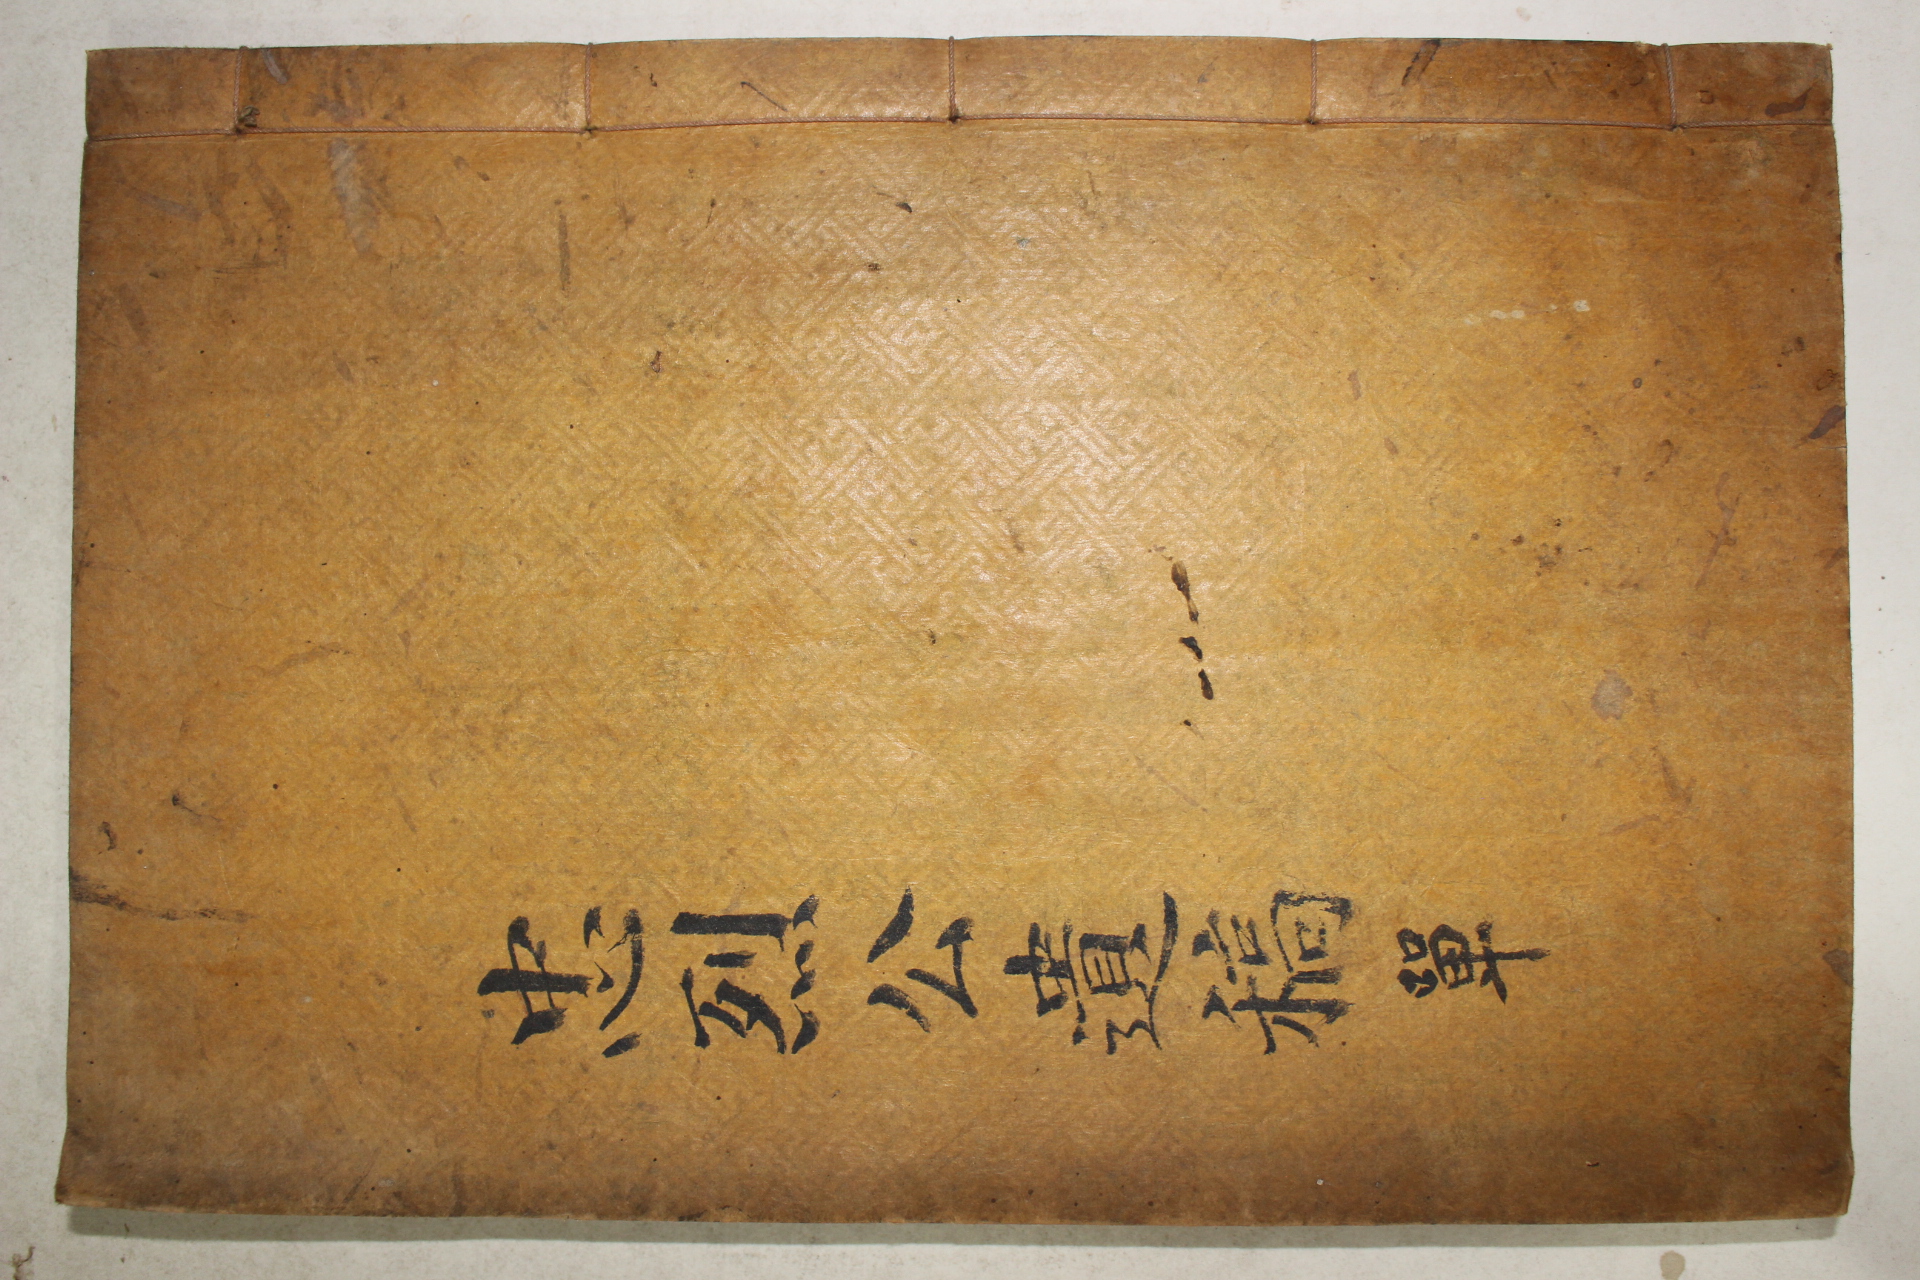 忠烈公遺稿單